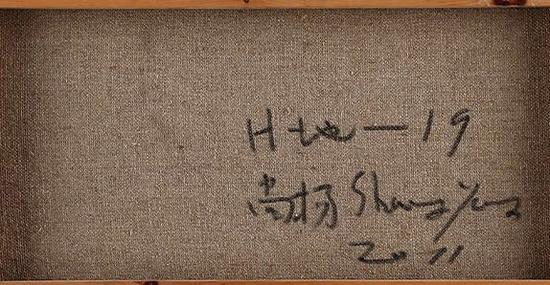 H地—19
尚扬 Shang Yang
2011